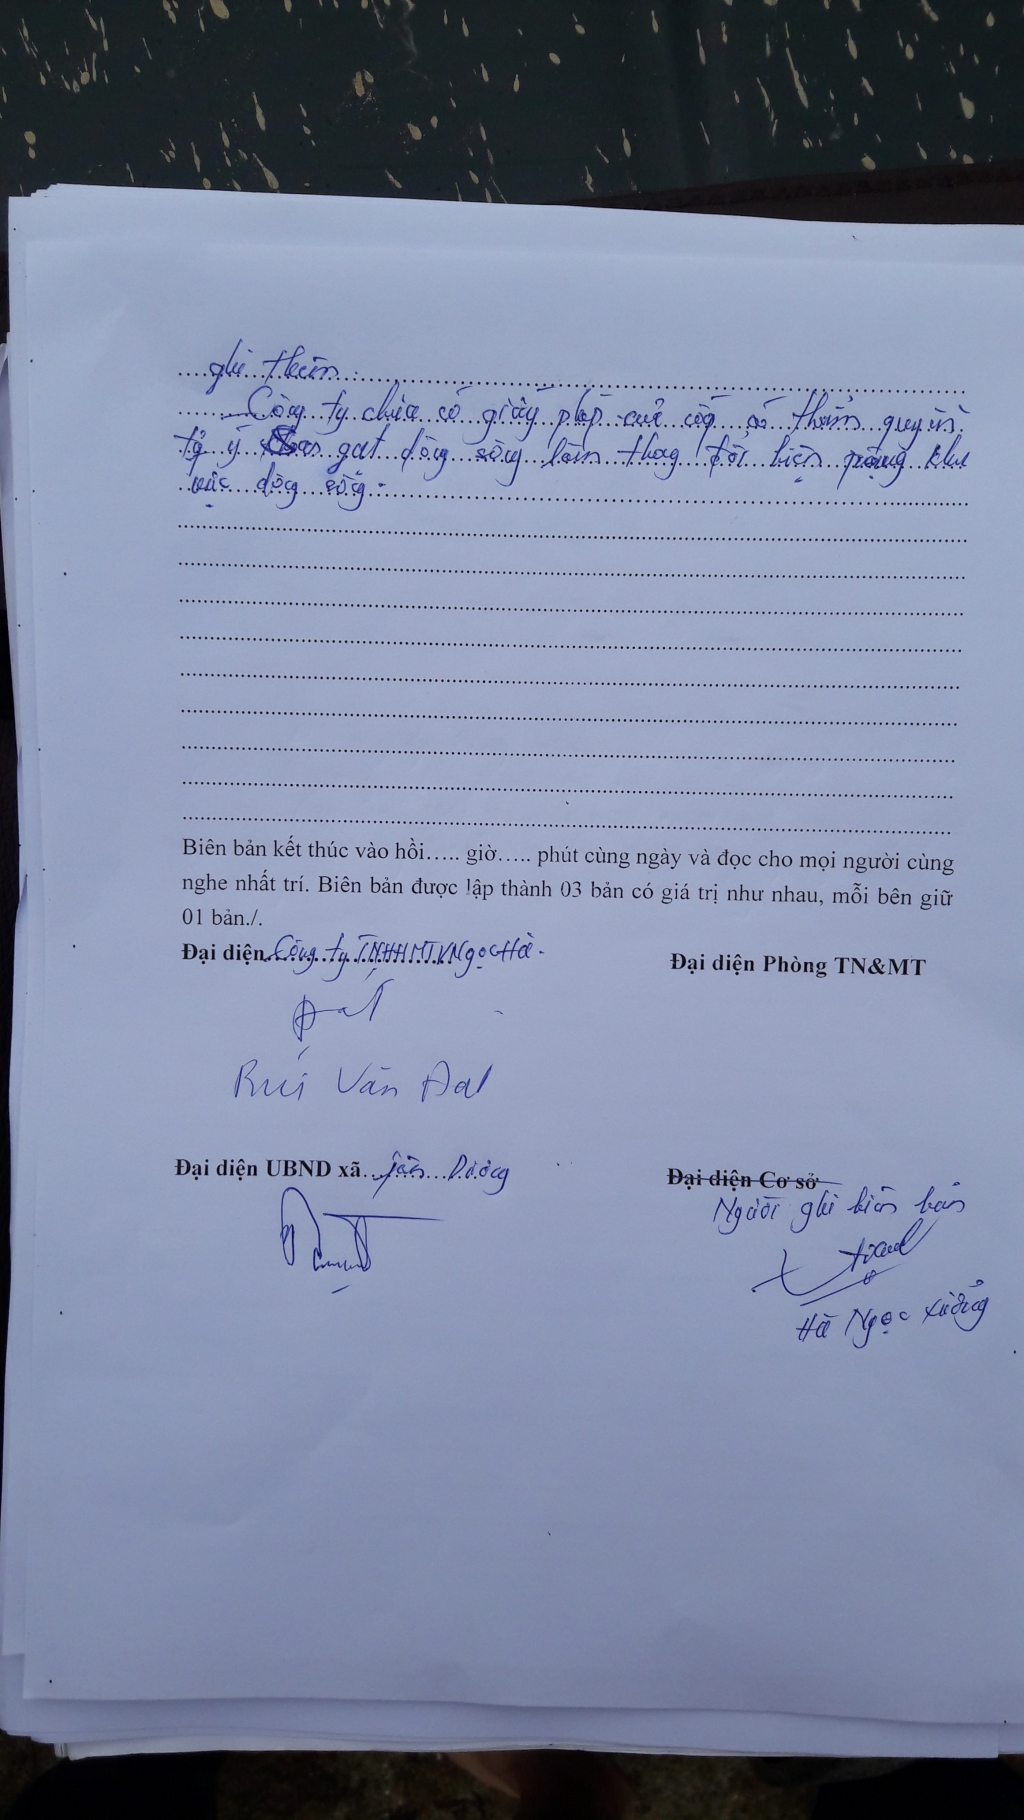 ghi thêm:
Công ty chưa có giấy phép của cấp có thẩm quyền.
tự ý san gạt dòng sông làm thay đổi hiện trạng khu
vực dòng sông.
Biên bản kết thúc vào hồi….. giờ….. phút cùng ngày và đọc cho mọi người cùng
nghe nhất trí. Biên bản được lập thành 03 bản có giá trị như nhau, mỗi bên giữ
01 bản./.
Đại diện Công ty TNHHMTV Ngọc Hà.
Đại diện Phòng TN&MT
Đạt
Bùi Văn Đạt
Đại diện UBND xã Tân Dương
Đại diện Cơ sở
Người ghi biên bản
Hà Ngọc Xưởng